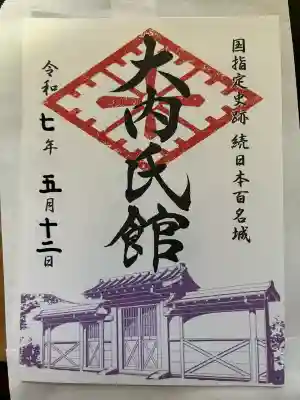 国指定史跡 続日本百名城
大内氏館
令和七年 五月十二日